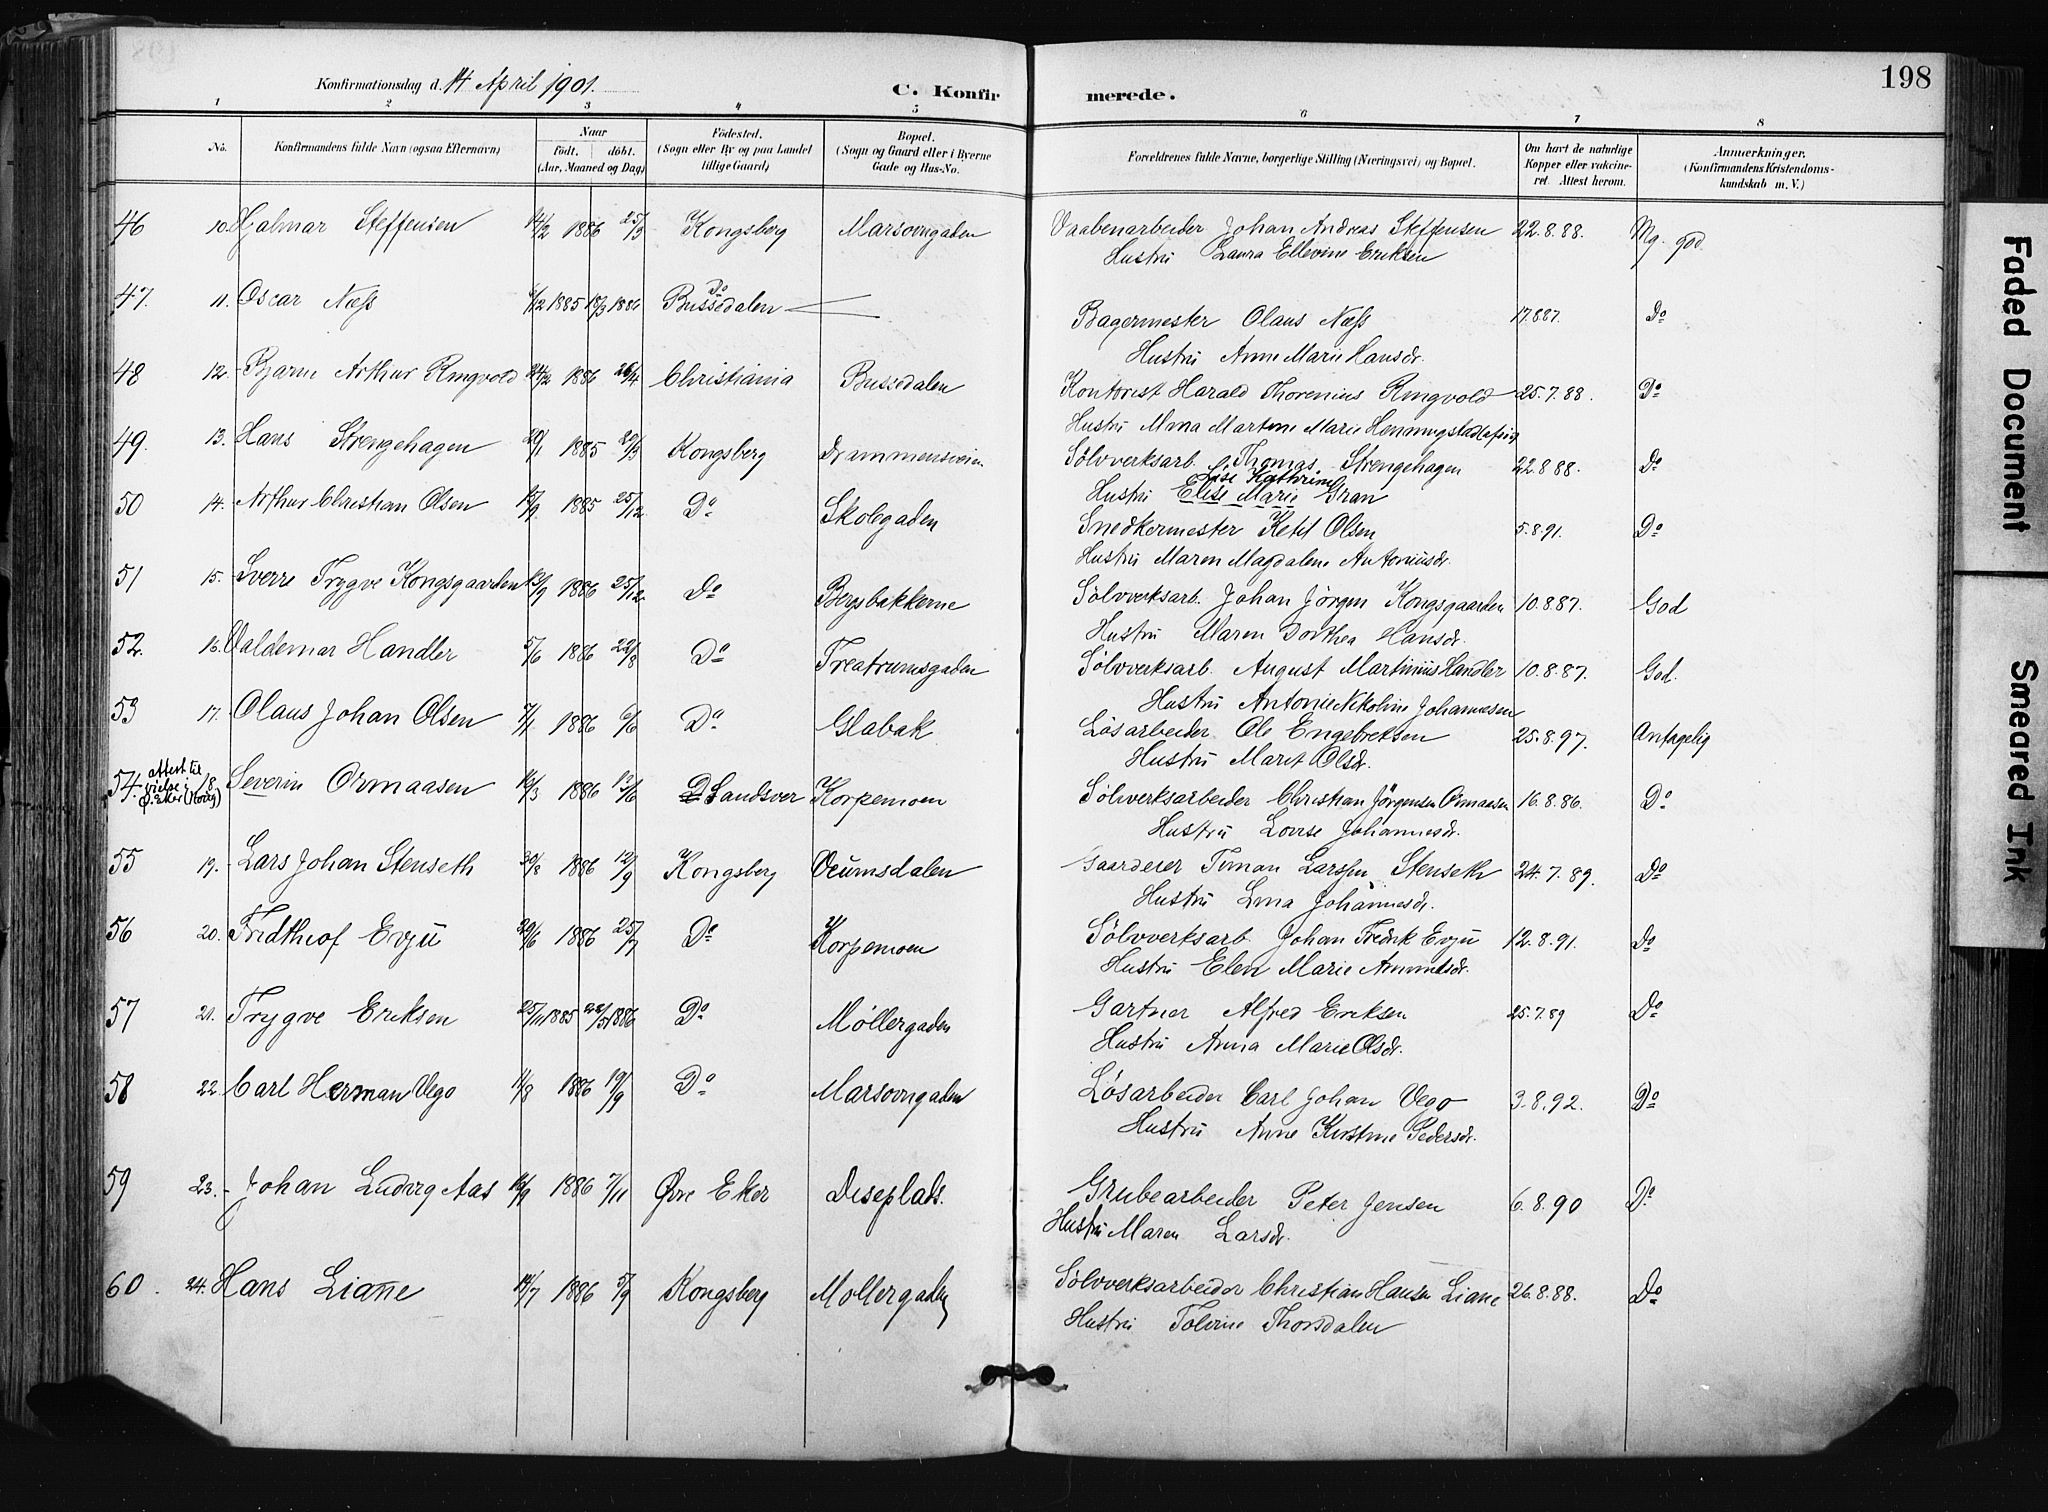 Konfirmationsdag d. 14 April 1901.
C. Konfirmerede.
198
1 2 3 4 5 6 7 8
No.
Konfirmandens fulde Navn (ogsaa Efternavn)
Naar
födt. döbt.
(Aar, Maaned og Dag)
Födested.
(Sogn eller By og paa Landet
tillige Gaard)
Bopæl.
(Sogn og Gaard eller i Byerne
Gade og Hus-No.
Forældrenes fulde Navne, borgerlige Stilling (Næringsvei) og Bopæl.
Om havt de naturlige
Kopper eller vakcine-
ret. Attest herom.
Anmærkninger.
(Konfirmandens Kristendoms-
kundskab m. V.)
46 10. Hjalmar Steffensen 14/2 1886 25/3 Kongsberg Marsovngaden Vaabenarbeider Johan Andreas Steffensen 22.8.88. Mg. god.
Hustru Laura Ellevine Eriksen
47. 11. Oscar Næss 6/12 1885 18/3 1886 Do Bussedalen — Bagermester Olaus Næss 17.8.87. Do
Hustru Anne Marie Hansdr.
48 12. Bjarne Arthur Ringvold 24/2 1886 26/4 Christiania Bussedalen Kontorist Harald Thorenius Ringvold 25.7.88. Do
Hustru Mina Martine Marie Henningstadløfsrud
49. 13. Hans Strengehagen 20/1 1885 29/3 Kongsberg Drammensveien Sölvverksarb. Thomas Strengehagen 22.8.88. Do
Lise Kathrine
Hustru Elise Marie Gran
50 14. Arthur Christian Olsen 15/9 1885 25/12 Do Skolegaden Snedkermester Ketil Olsen 5.8.91. Do
Hustru Maren Magdalene Antoniusdr.
51 15. Sverre Trygve Kongsgaarden 13/9 1886 25/12 Do Bergsbakkerne Sölvverksarb. Johan Jörgen Kongsgaarden 10.8.87. God
Hustru Maren Dorthea Hansdr.
52. 16. Valdemar Handler 5/6 1886 22/8 Do Treatrumsgaden Sölvverksarb. August Martinius Handler 10.8.87. God.
Hustru Antonie Nikoline Johannesen
53 17. Olaus Johan Olsen 7/1 1886 6/6 Do Glabak Lösarbeider Ole Engebretsen 25.8.97. Antagelig
Hustru Marit Olsdr.
54. attest til
vielse i
Ø. Eker (Norig) 18. Severin Ormaasen 16/3 1886 13/6 Sandsver Korpemoen Sölvverksarbeider Christian Jörgensen Ormaasen 16.8.86. Do
Hustru Lovise Johannesdr.
55 19. Lars Johan Stenseth 30/8 1886 12/9 Kongsberg Veumsdalen Gaardeier Timan Larssen Stenseth 24.7.89. Do
Hustru Lina Johannesdr.
56 20. Fridtheof Evju 29/6 1886 25/7 Do Korpemoen Sölvverksarb. Johan Fredrik Evju 12.8.91. Do
Hustru Elen Marie Amundsdr.
57 21. Trygve Eriksen 25/11 1885 22/5 1886 Do Möllergaden Gartner Alfred Eriksen 25.7.89 Do
Hustru Anna Marie Olsdr.
58 22. Carl Herman Vego 11/8 1886 19/9 Do Marsovngaden Lösarbeider Carl Johan Vego 3.8.92. Do
Hustru Anne Kirstine Pedersdr.
59 23. Johan Ludvig Aas 16/9 1886 7/11 Øvre Eker Diseplads. Grubearbeider Peter Jensen 6.8.90 Do
Hustru Maren Larsdr.
60. 24. Hans Liane 14/7 1886 5/9 Kongsberg Mollergaden Sölvverksarbeider Christian Hansen Liane 26.8.88. Do
Hustru Tolvine Thorsdalen
Faded Document
Smeared Ink